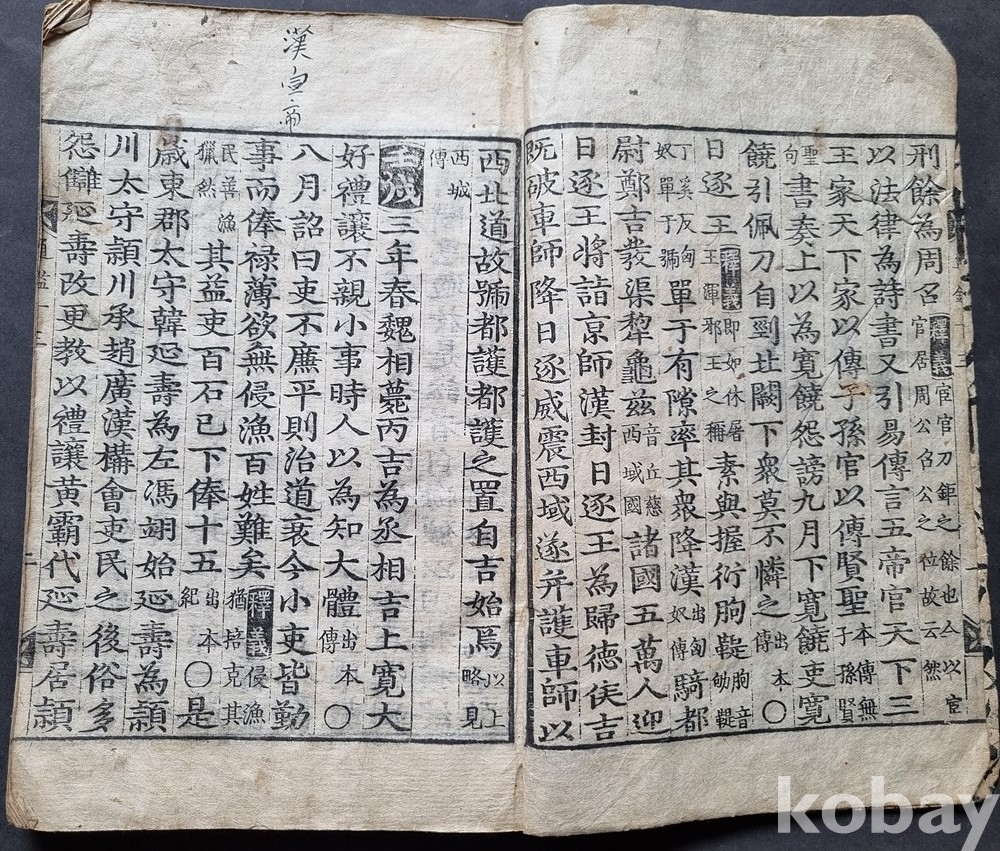 漢宣帝
刑餘為周召釋義宦官刀鋸之餘也今以宦官居周公召公之位故云然
以法律為詩書又引易傳言五帝官天下三
王家天下家以傳子孫官以傳賢聖本傳無子孫賢
聖句書奏上以為寬饒怨謗九月下寬饒吏寬
饒引佩刀自剄北闕下衆莫不憐之出本傳〇
日逐王釋義即如休屠王渾邪王之稱素與握衍朐鞮朐音劬鞮
丁奚反匈奴單于號單于有隙率其衆降漢出匈奴傳騎都
尉鄭吉發渠犂龜兹音丘慈西域國諸國五萬人迎
日逐王將詣京師漢封日逐王為歸德侯吉
既破車師降日逐威震西域遂并護車師以
西北道故號都護都護之置自吉始焉以上略見
西域傳
壬戌三年春魏相薨丙吉為丞相吉上寬大
好禮讓不親小事時人以為知大體出本傳〇
八月詔曰吏不廉平則治道衰今小吏皆勤
事而俸禄薄欲無侵漁百姓難矣釋義侵漁猶掊克其
民善漁獵然其益吏百石已下俸十五出本紀〇是
歲東郡太守韓延壽為左馮翊始延壽為潁
川太守潁川承趙廣漢構會吏民之後俗多
怨讎延壽改更教以禮讓黃霸代延壽居潁
kobay